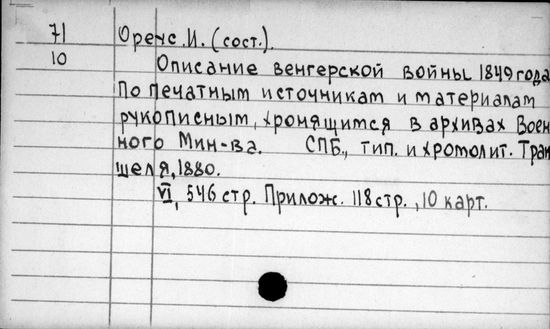 71 Оренс.И. (сост.).
10 Описание венгерской войны 1849 года
По печатным источникам и материалам
рукописным, хронящимся в архивах Воен
ного Мин-ва. СПБ., тип. и хромолит. Тран
шеля, 1880.
VI, 546 стр. Прилож. 118 стр., 10 карт.